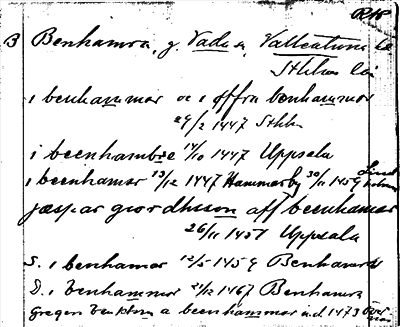 B Benhamra, g. Vada sn, Vallentuna hd
Sthlms län
i benhammar oc i offra benhammar
29/2 1447 Sthlm
i beenhambre 14/10 1447 Uppsala
i beenhamar 13/12 1447 Hammarby 30/11 1459
jæspar giordhsson aff beenhamar
26/11 1451 Uppsala
S. i benhamar 12/5 1459 Benhamra
D. i benhammar 21/12 1467 Benhamra
gregers a beenhammar u.d. 1473